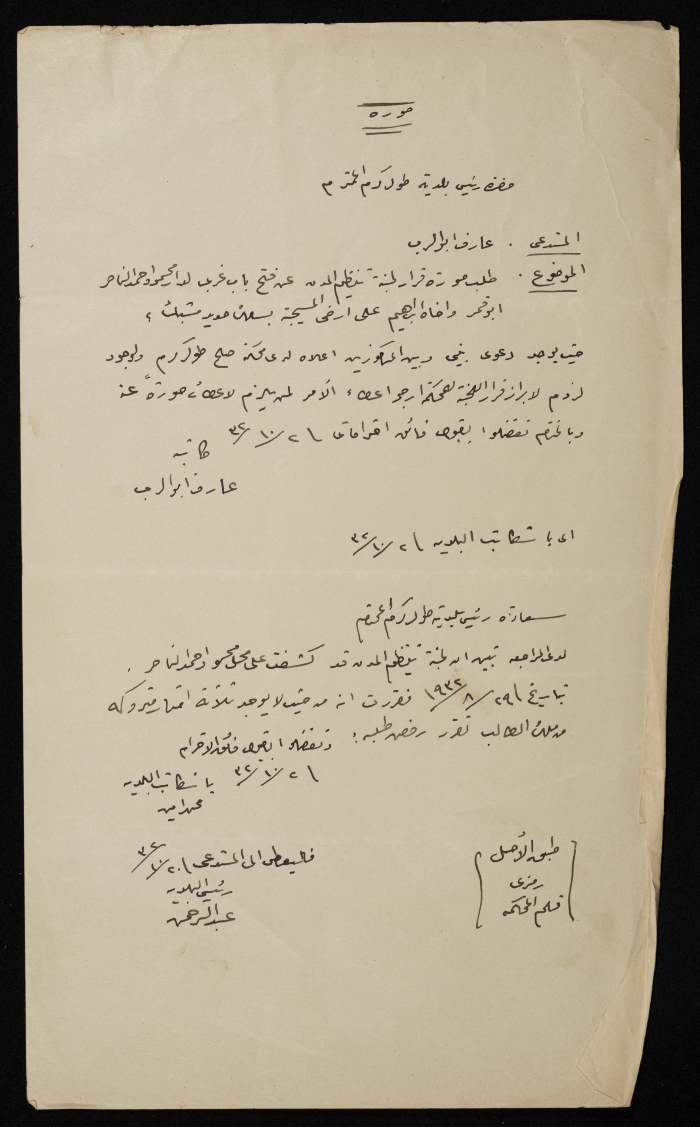 صورة
حضرة رئيس بلدية طولكرم المحترم
المستدعي . عارف ابو الرب
الموضوع . طلب صورة قرار لجنة تنظيم المدن عن فتح باب غربي لدار محمود احمد الناصر
ابو قمر واخاه ابراهيم على ارض المسيجة بسلك حديد مشبك ؟
حيث يوجد دعوى بيني وبين المذكورين اعلاه لدى محكمة صلح طولكرم ولوجود
لزوم لابراز قرار اللجنة للمحكمة ارجو اعطاء الأمر لمن يلزم لاعطائي صورةً عنه
وبالختام تفضلوا بقبول فائق احتراماتي ٢١/١٠/٣٢
كاتبه
عارف ابو الرب
الى باشكاتب البلدية ٢١/١٠/٣٢
سعادة رئيس بلدية طولكرم المحترم
لدى المراجعه تبين ان لجنة تنظيم المدن قد كشفت على محل محمود احمد الناصر .
بتاريخ ٢٩/٨/١٩٣٢ فقررت انه من حيث لا يوجد ثلاثة امتار متروكه
من ملك الطالب تقرر رفض طلبه ؛ وتفضلوا بقبول فائق الاحترام
٢١/١٠/٣٢ باشكاتب البلديه
محمد امين
فليعطى الى المستدعي ٢٠/١٠/٣٢
رئيس البلديه
عبد الرحمن
طبق الأصل
رمزي
قلم المحكمه